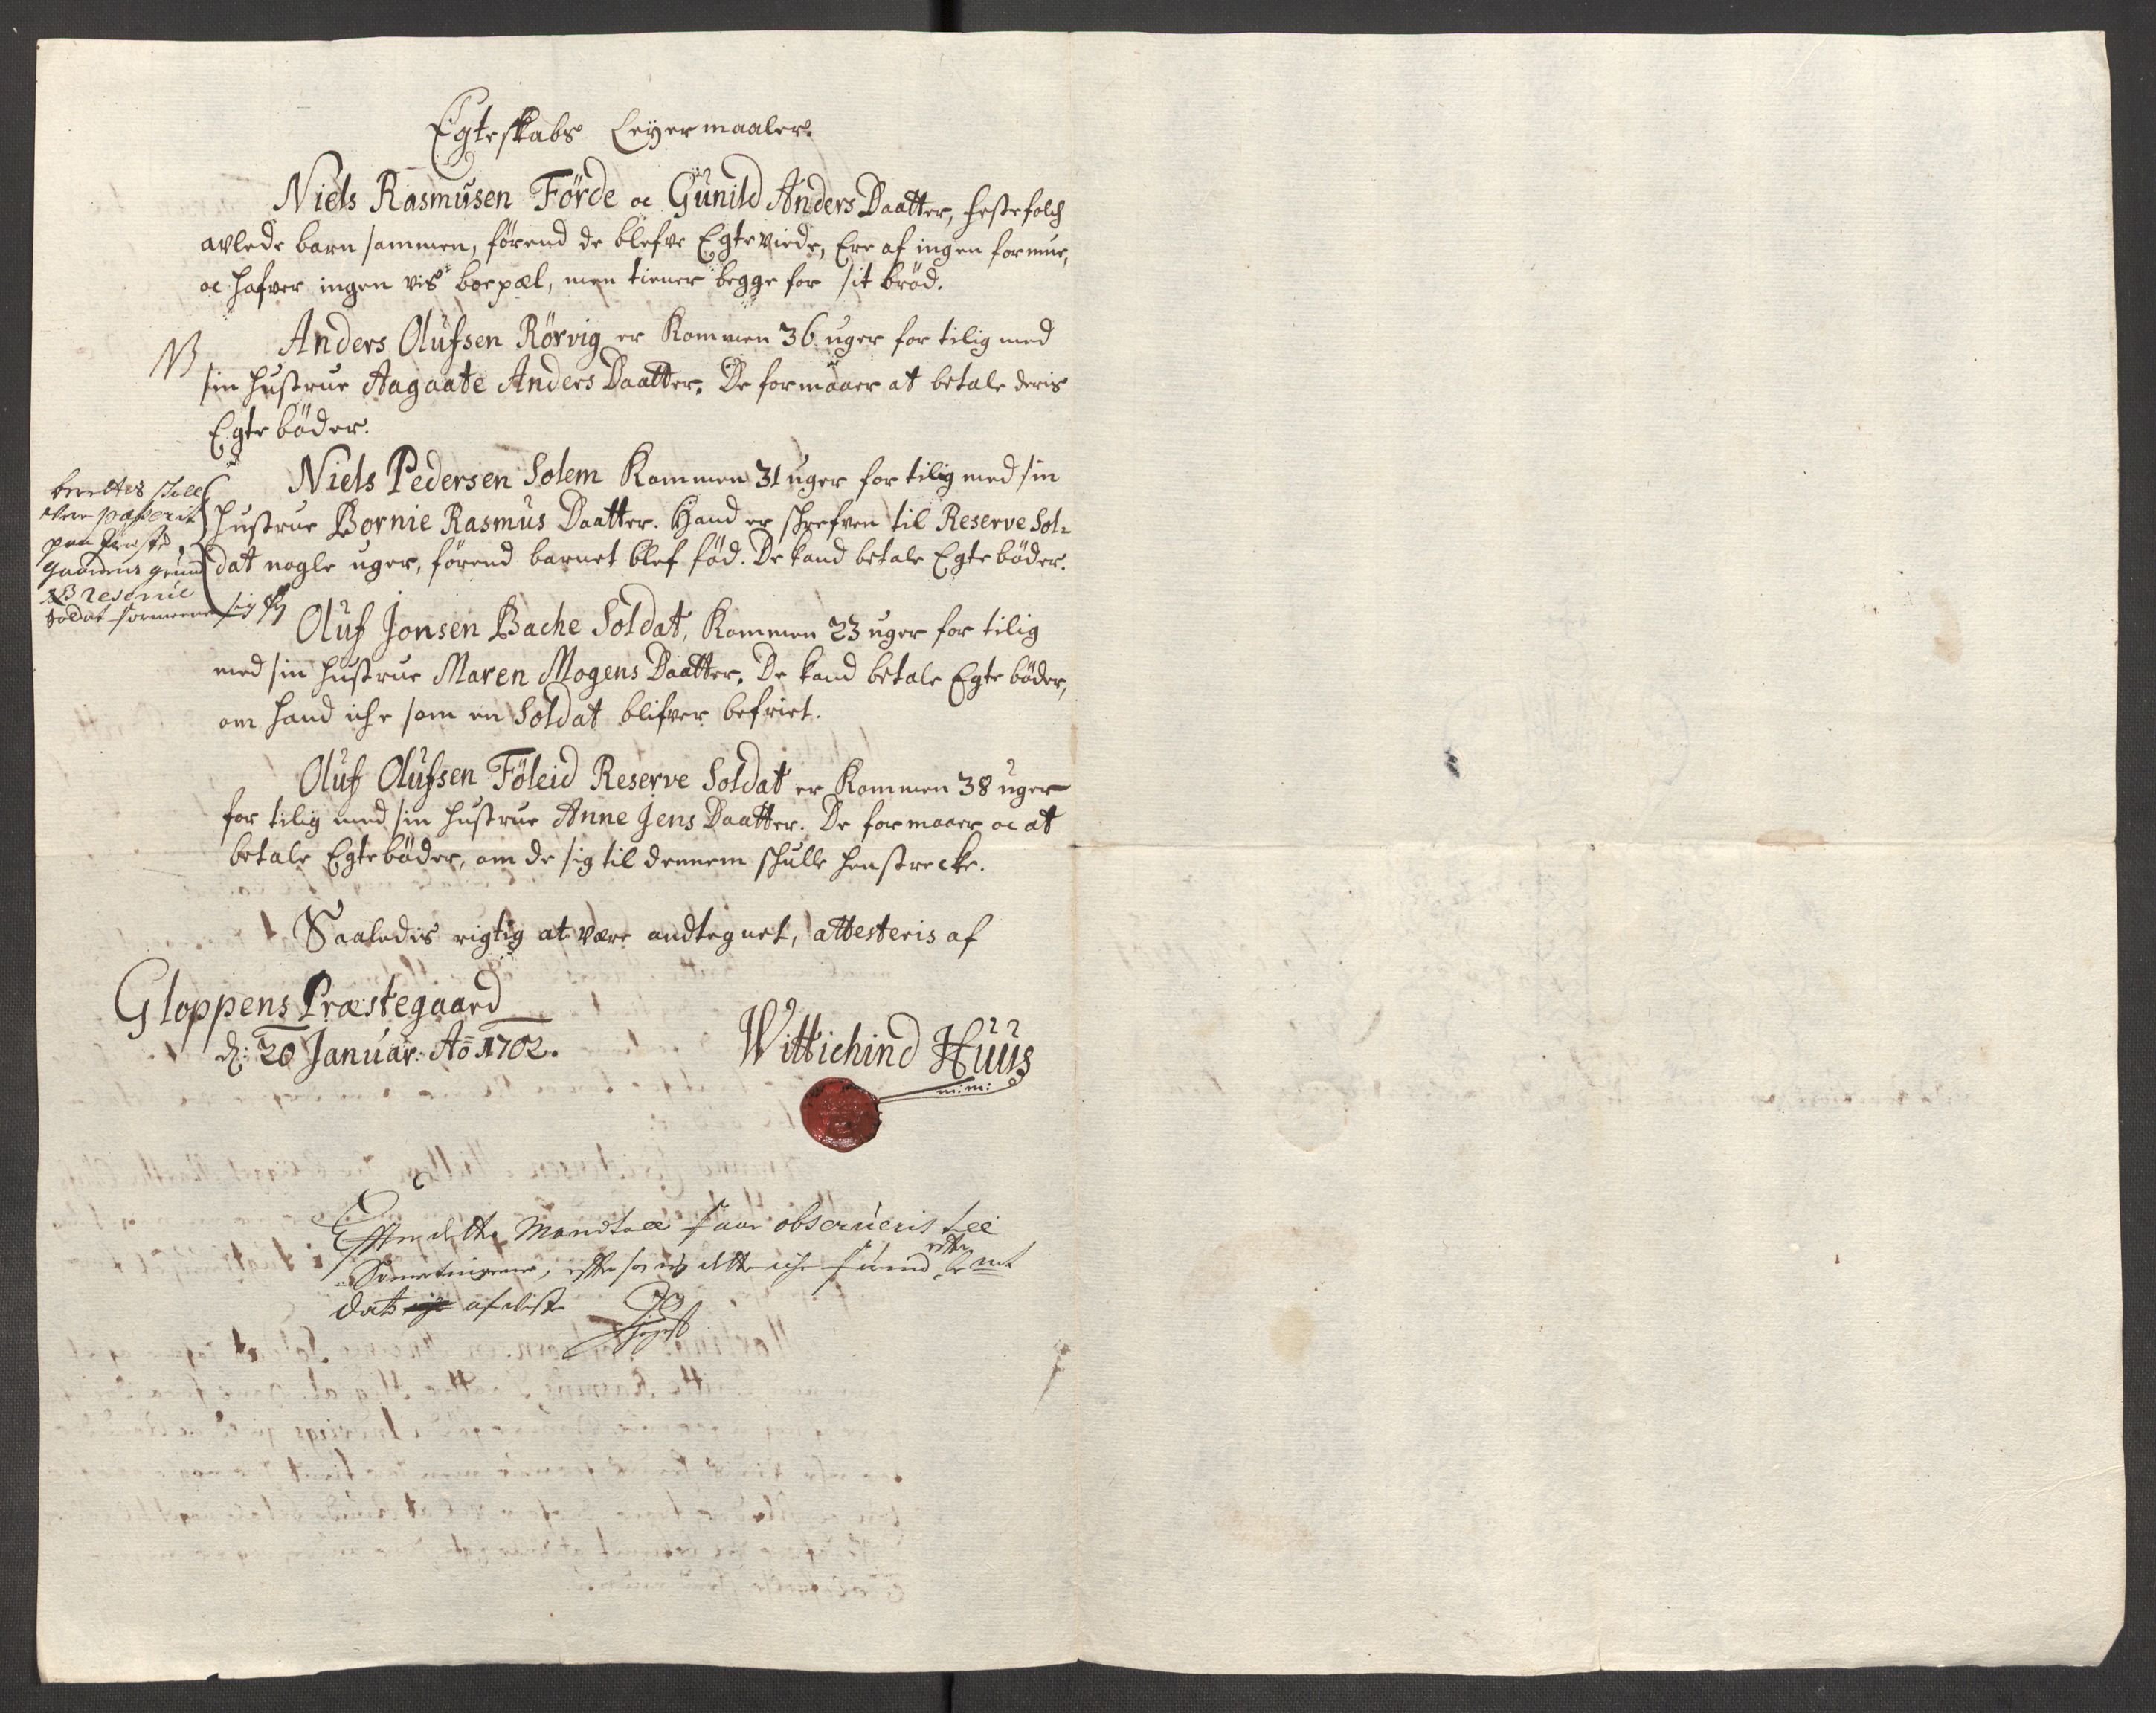 Egteskabs Leyermaaler.
Niels Rasmusen Förde oc Gunild Anders Daatter, festefolch
avlede barn sammen, förend de blefve Egteviede, Ere af ingen formue,
oc hafver ingen vis boepæl, men tiener begge for sit bröd.
NB Anders Olufsen Rörvig er kommen 36 uger for tilig med
sin hustrue Aagaate Anders Daatter. De formaaer at betale deris
Egte böder.
Niels Pedersen Solem kommen 31 uger for tilig med sin
hustrue Bornie Rasmus Daatter. Hand er schrefven til Reserve Sol-
dat nogle uger, förend barnet blef föd. De kand betale Egteböder.
berettes skall
vere passerit
paa Præste
gaardens grund
NB Reserve
Soldat formeener sig frj
Oluf Jonsen Bache Soldat, kommen 23 uger for tilig
med sin hustrue Maren Mogens Daatter. De kand betale Egte böder,
om hand iche som en Soldat blifver befriet.
Oluf Olufsen Föleid Reserve Soldat er kommen 38 uger
for tilig med sin hustrue Anne Jens Daatter. De formaaer oc at
betale Egteböder, om de sig til dennem schulle henstrecke.
Saaledis rigtig at være andtegnet, attesteris af
Gloppens Præstegaard
d: 20 Januar: Ao 1702.
Wittichind Huus
m:m:
Efter dette Mandtall faar observeris till
efter
dato afviste